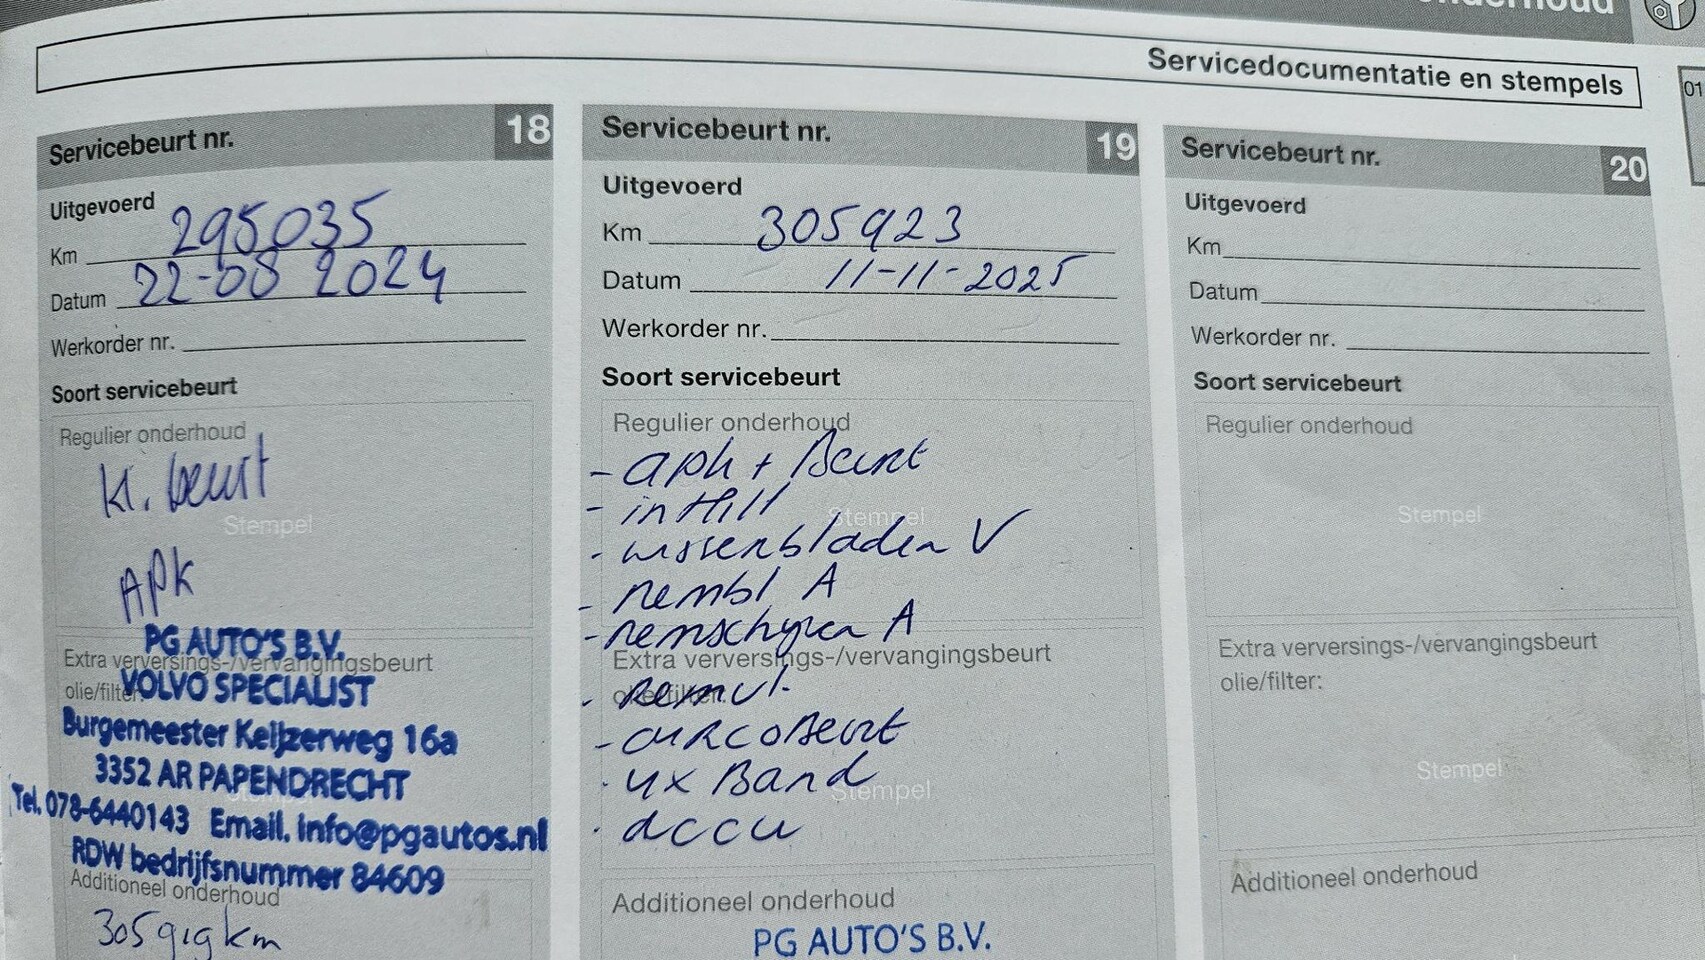 onderhoud
Servicedocumentatie en stempels
01
Servicebeurt nr. 18
Uitgevoerd
Km 295035
Datum 22-08 2024
Werkorder nr.
Soort servicebeurt
Regulier onderhoud
kl. beurt
Stempel
APK
PG AUTO'S B.V.
Extra verversings-/vervangingsbeurt
olie/filter:
VOLVO SPECIALIST
Burgemeester Keijzerweg 16a
3352 AR PAPENDRECHT
Stempel
Tel. 078-6440143 Email. info@pgautos.nl
RDW bedrijfsnummer 84609
Additioneel onderhoud
305919 km
Servicebeurt nr. 19
Uitgevoerd
Km 305923
Datum 11-11-2025
Werkorder nr.
Soort servicebeurt
Regulier onderhoud
- apk + Beurt
- intfill
Stempel
- wissenbladen V
- rembl A
- remschyven A
Extra verversings-/vervangingsbeurt
olie/filter:
- remvl.
- aircobeurt
- 4x Band
Stempel
- accu
Additioneel onderhoud
PG AUTO'S B.V.
Servicebeurt nr. 20
Uitgevoerd
Km
Datum
Werkorder nr.
Soort servicebeurt
Regulier onderhoud
Stempel
Extra verversings-/vervangingsbeurt
olie/filter:
Stempel
Additioneel onderhoud